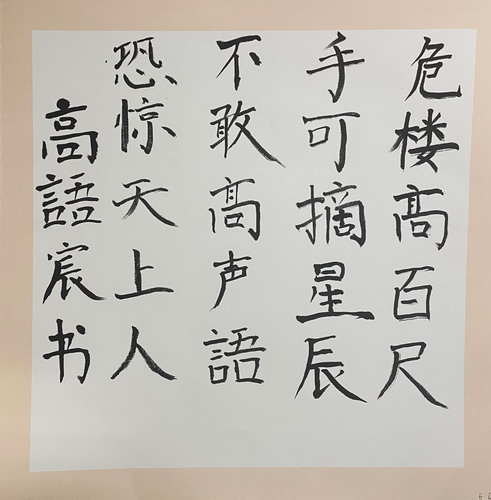 危楼髙百尺
手可摘星辰
不敢髙声語
恐惊天上人
高語宸书